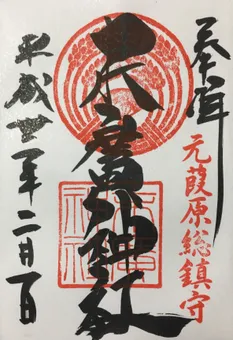 奉拝
元葭原総鎮守
末廣神社
平成卅一年二月一日